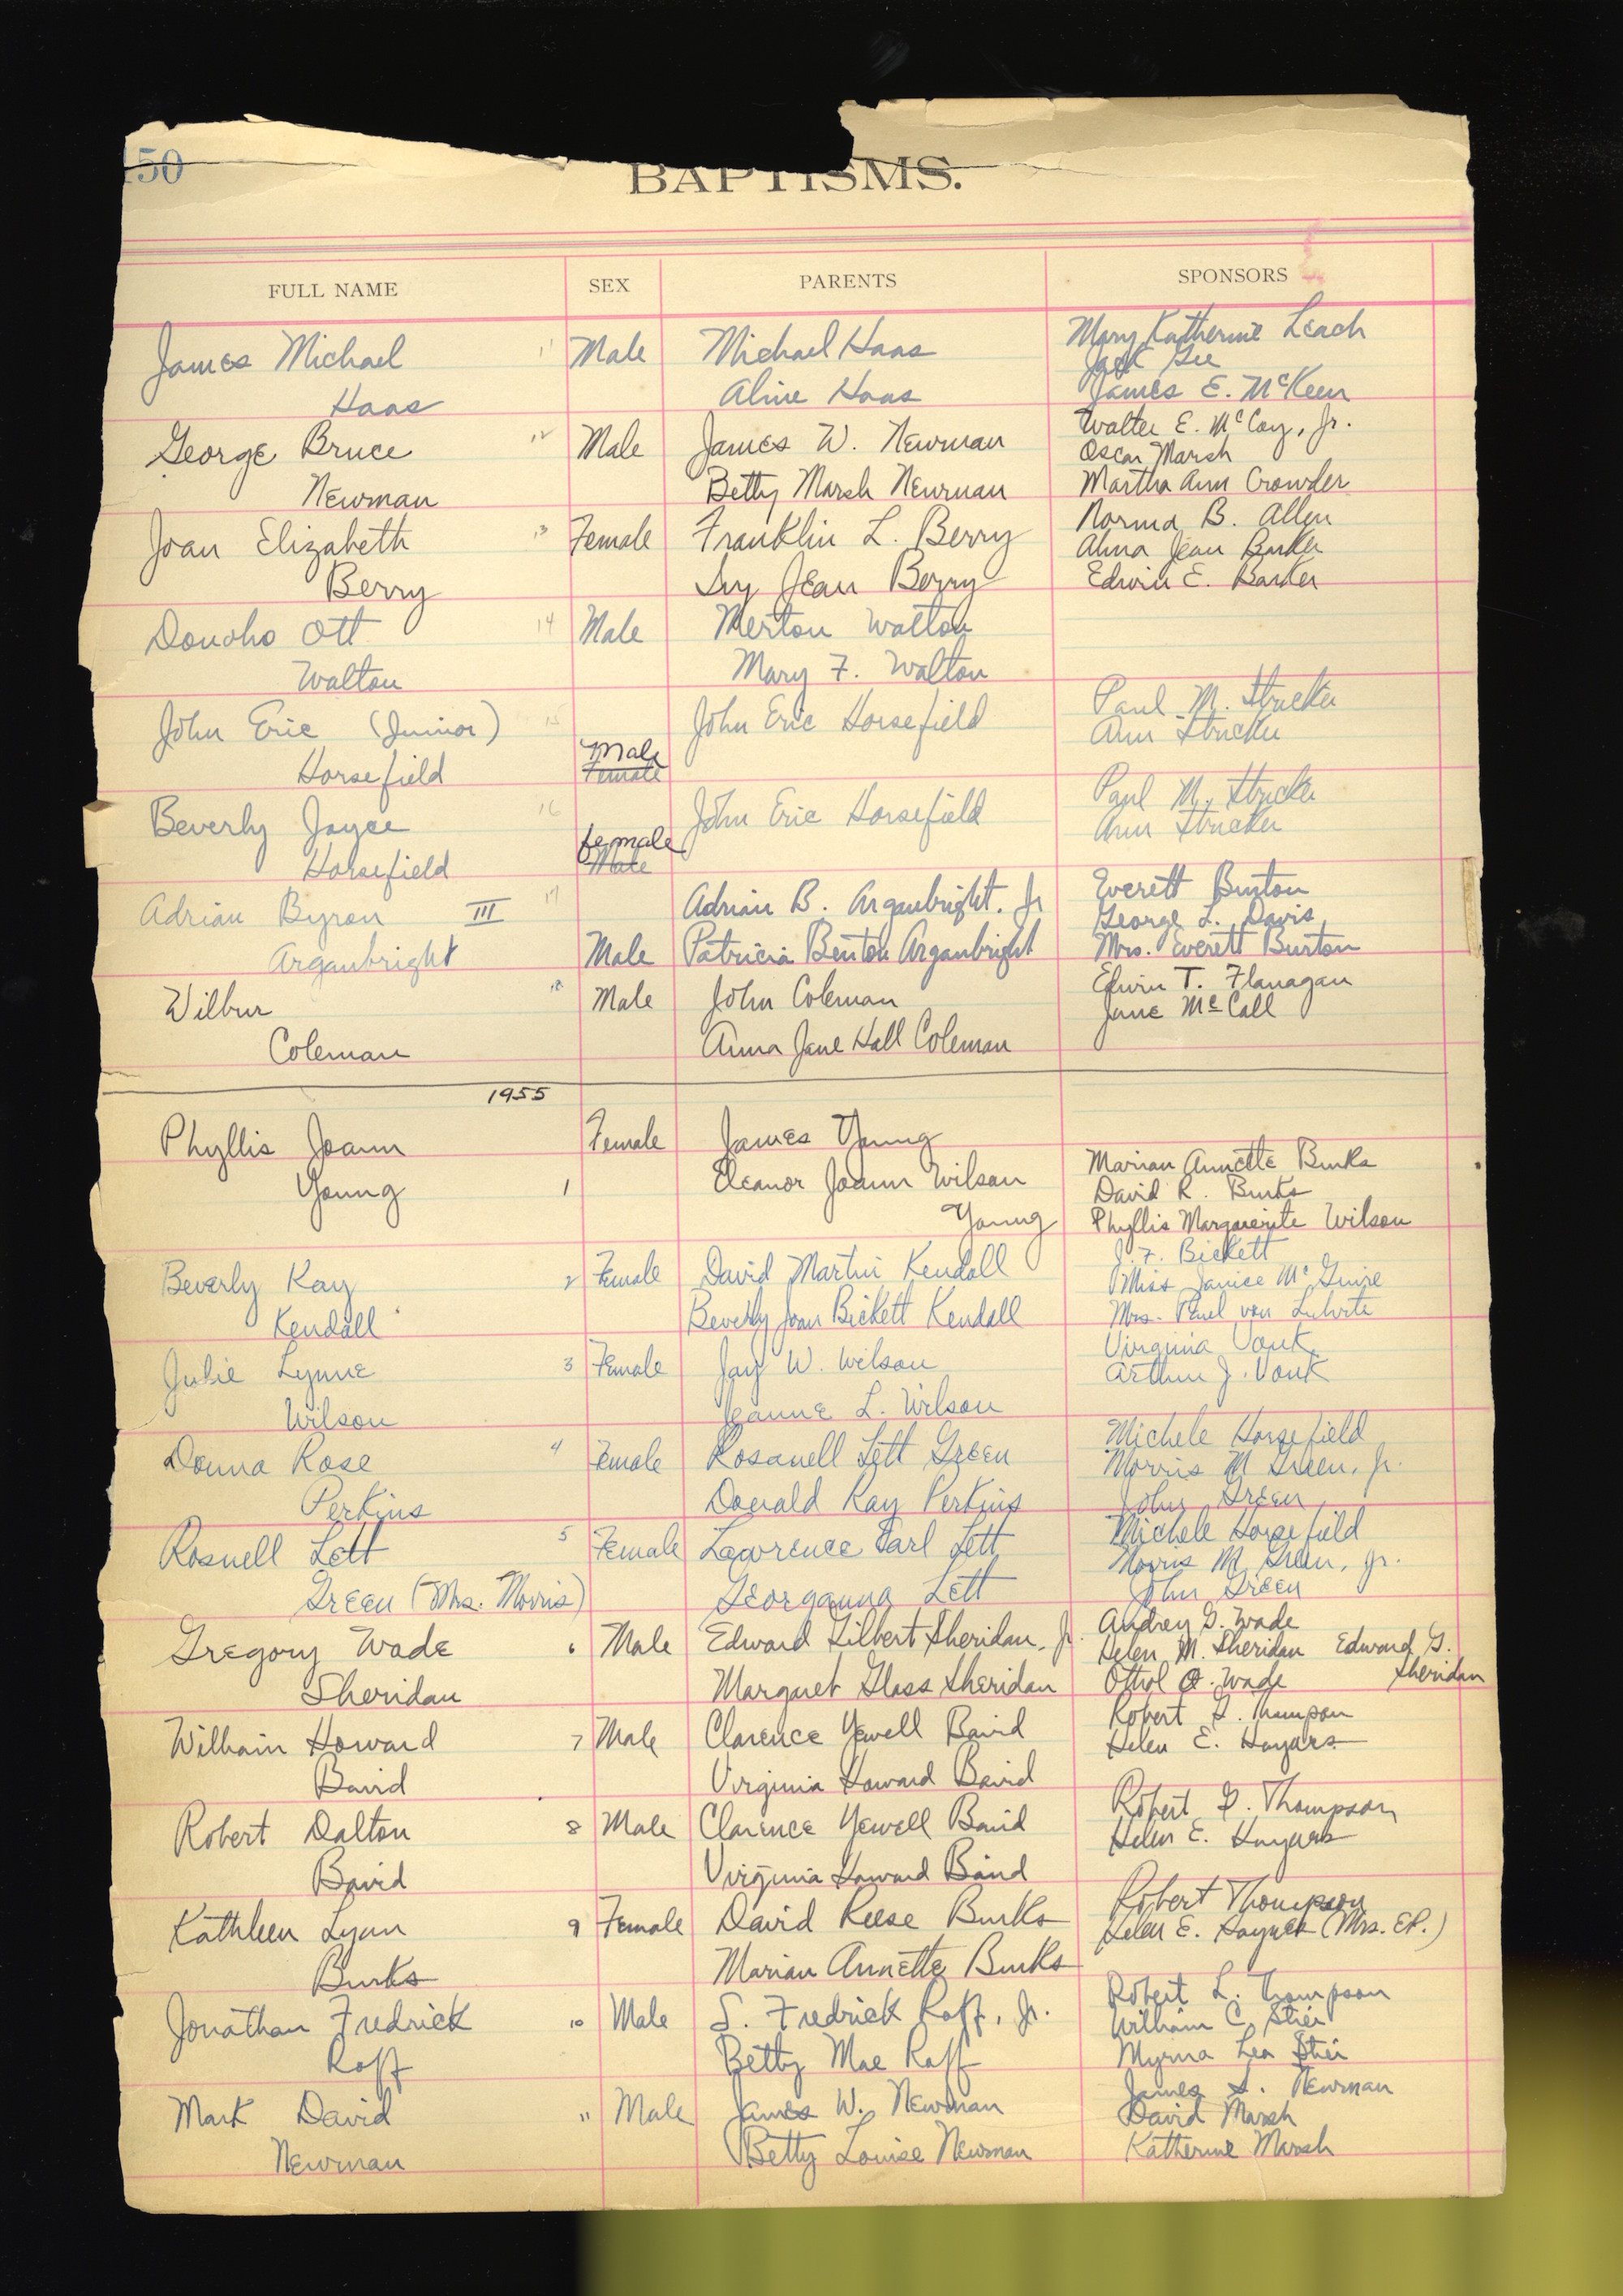 150
BAPTISMS.
FULL NAME SEX PARENTS SPONSORS
James Michael 11 Male Michael Haas Mary Katherine Leach
Jack Gee
Haas Aline Haas James E. McKeen
George Bruce 12 Male James W. Newman Walter E. McCoy, Jr.
Oscar Marsh
Newman Betty Marsh Newman Martha Ann Crowder
Joan Elizabeth 13 Female Franklin L. Berry Norma B. Allen
Alma Jean Barker
Berry Ivy Jean Berry Edwin E. Barker
Donoho Ott 14 Male Merton Walton
Walton Mary F. Walton
John Eric (Junior) 15 John Eric Horsefield Paul M. Strucker
Ann Strucker
Male
Horsefield Female
Beverly Joyce 16 John Eric Horsefield Paul M. Strucker
Ann Strucker
female
Horsefield Male
Adrian Byron III 17 Adrian B. Arganbright, Jr Everett Burton
George L. Davis
Arganbright Male Patricia Benton Arganbright Mrs. Everett Burton
Wilbur 18 Male John Coleman Edwin T. Flanagan
Jane McCall
Coleman Anna Jane Hall Coleman
1955
Phyllis Joann Female James Young
Marian Annette Burks
Young 1 Eleanor Joann Wilson David R. Burks
Young Phyllis Marguerite Wilson
Beverly Kay 2 Female David Martin Kendall J. F. Bickett
Miss Janice McGuire
Kendall Beverly Joan Bickett Kendall Mrs. Paul von
Julie Lynne 3 Female Jay W. Wilson Virginia Vouk
Arthur J. Vouk
Wilson Jeanne L. Wilson
Donna Rose 4 Female Rosanell Lett Green Michele Horsefield
Morris M Green, Jr.
Perkins Donald Ray Perkins John Green
Rosnell Lett 5 Female Lawrence Earl Lett Michele Horsefield
Morris M. Green, Jr.
Green (Mrs. Morris) Georganna Lett John Green
Gregory Wade 6 Male Edward Gilbert Sheridan, Jr. Audrey G. Wade
Helen M. Sheridan Edward G.
Sheridan Margaret Glass Sheridan O. Wade Sheridan
William Howard 7 Male Clarence Yewell Baird Robert G. Thompson
Helen E. Haynes
Baird Virginia Howard Baird
Robert Dalton 8 Male Clarence Yewell Baird Robert G. Thompson
Helen E. Haynes
Baird Virginia Howard Baird
Kathleen Lynn 9 Female David Reese Burks Robert Thompson
Helen E. Haynes (Mrs. EP.)
Burks Marian Annette Burks
Jonathan Fredrick 10 Male S. Fredrick Raff, Jr. Robert L. Thompson
William C. Stier
Raff Betty Mae Raff Myrna Lea Stier
Mark David 11 Male James W. Newman James S. Newman
David Marsh
Newman Betty Louise Newman Katherine Marsh